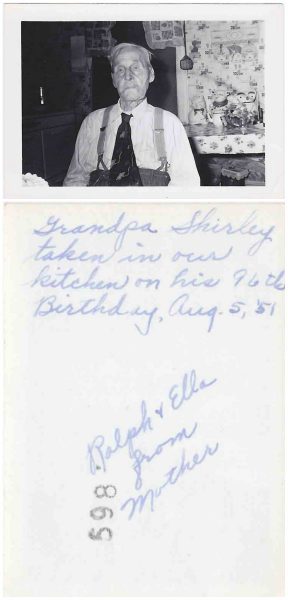 Grandpa Shirley
taken in our
kitchen on his 96th
Birthday, Aug. 5, '51
Ralph & Ella
from
Mother
598